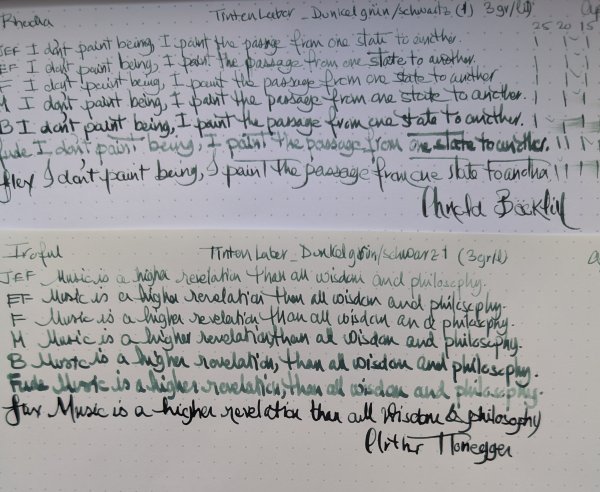 Rhodia TintenLabor_Dunkelgrün/schwartz (1) 3gr/l
25 20 15
JEF I don't paint being, I paint the passage from one state to another.
EF I don't paint being, I paint the passage from one state to another.
F I don't paint being, I paint the passage from one state to another
M I don't paint being, I paint the passage from one state to another.
B I don't paint being, I paint the passage from one state to another.
fude I don't paint being, I paint the passage from one state to another.
flex I don't paint being, I paint the passage from one state to another
Arnold Böcklin
Iroful TintenLabor_Dunkelgrün/schwartz 1 (3gr/l)
JEF Music is a higher revelation than all wisdom and philosophy.
EF Music is a higher revelation than all wisdom and philosophy.
F Music is a higher revelation than all wisdom and philosophy.
M Music is a higher revelation than all wisdom and philosophy.
B Music is a higher revelation, than all wisdom and philosophy.
Fude Music is a higher revelation, than all wisdom and philosophy.
flex Music is a higher revelation than all wisdom & philosophy
Arthur Honegger